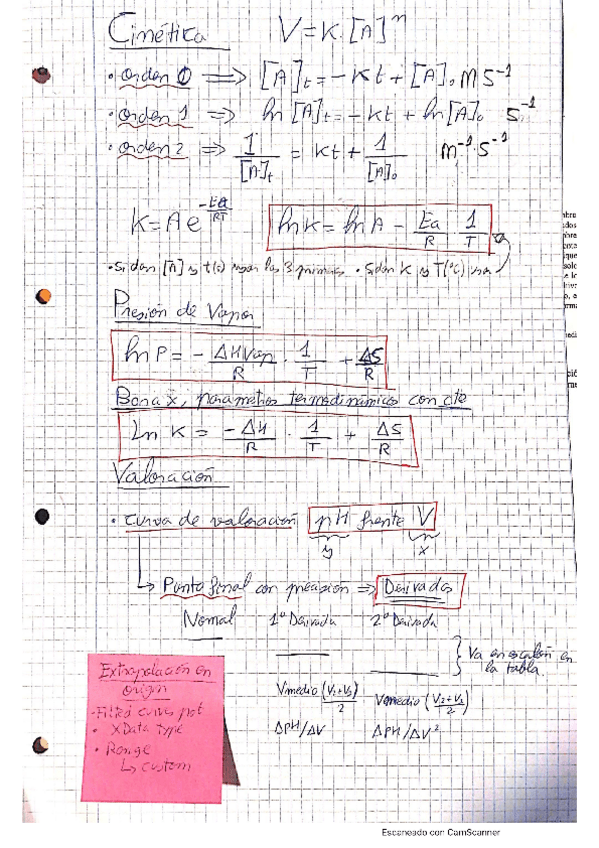 Cinética V = K·[A]^m
• orden 0 ⟹ [A]t = -Kt + [A]₀ M S⁻¹
• orden 1 ⟹ ln [A]t = -Kt + ln [A]₀ S⁻¹
• orden 2 ⟹ 1/[A]t = Kt + 1/[A]₀ M⁻¹·S⁻¹
K = A e^(-Ea/RT) ln K = ln A - Ea/R · 1/T
• Si dan [A] y t(s) usar las 3 primeras • Si dan K y T(ºC) usar
Presión de Vapor
ln P = - ΔHvap/R · 1/T + ΔS/R
Borax, parámetros termodinámicos con cte
Ln K = -ΔH/R · 1/T + ΔS/R
Valoración
• curva de valoración pH frente V
y x
↳ Punto final con precisión ⟹ Derivadas
Normal 1º Derivada 2º Derivada
Va en escalón en
la tabla.
Vmedio (V₁+V₂)/2 Vmedio (V₂+V₁)/2
ΔPH/ΔV ΔPH/ΔV²
Extrapolación en
origin
• Fitted curves plot
• X Data type
• Range
↳ custom
Escaneado con CamScanner